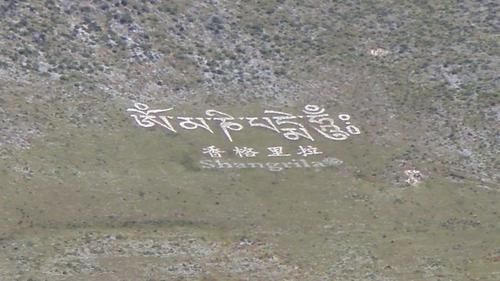 ཨོཾ་མ་ཎི་པདྨེ་ཧཱུྃ༔
香格里拉
Shangrila